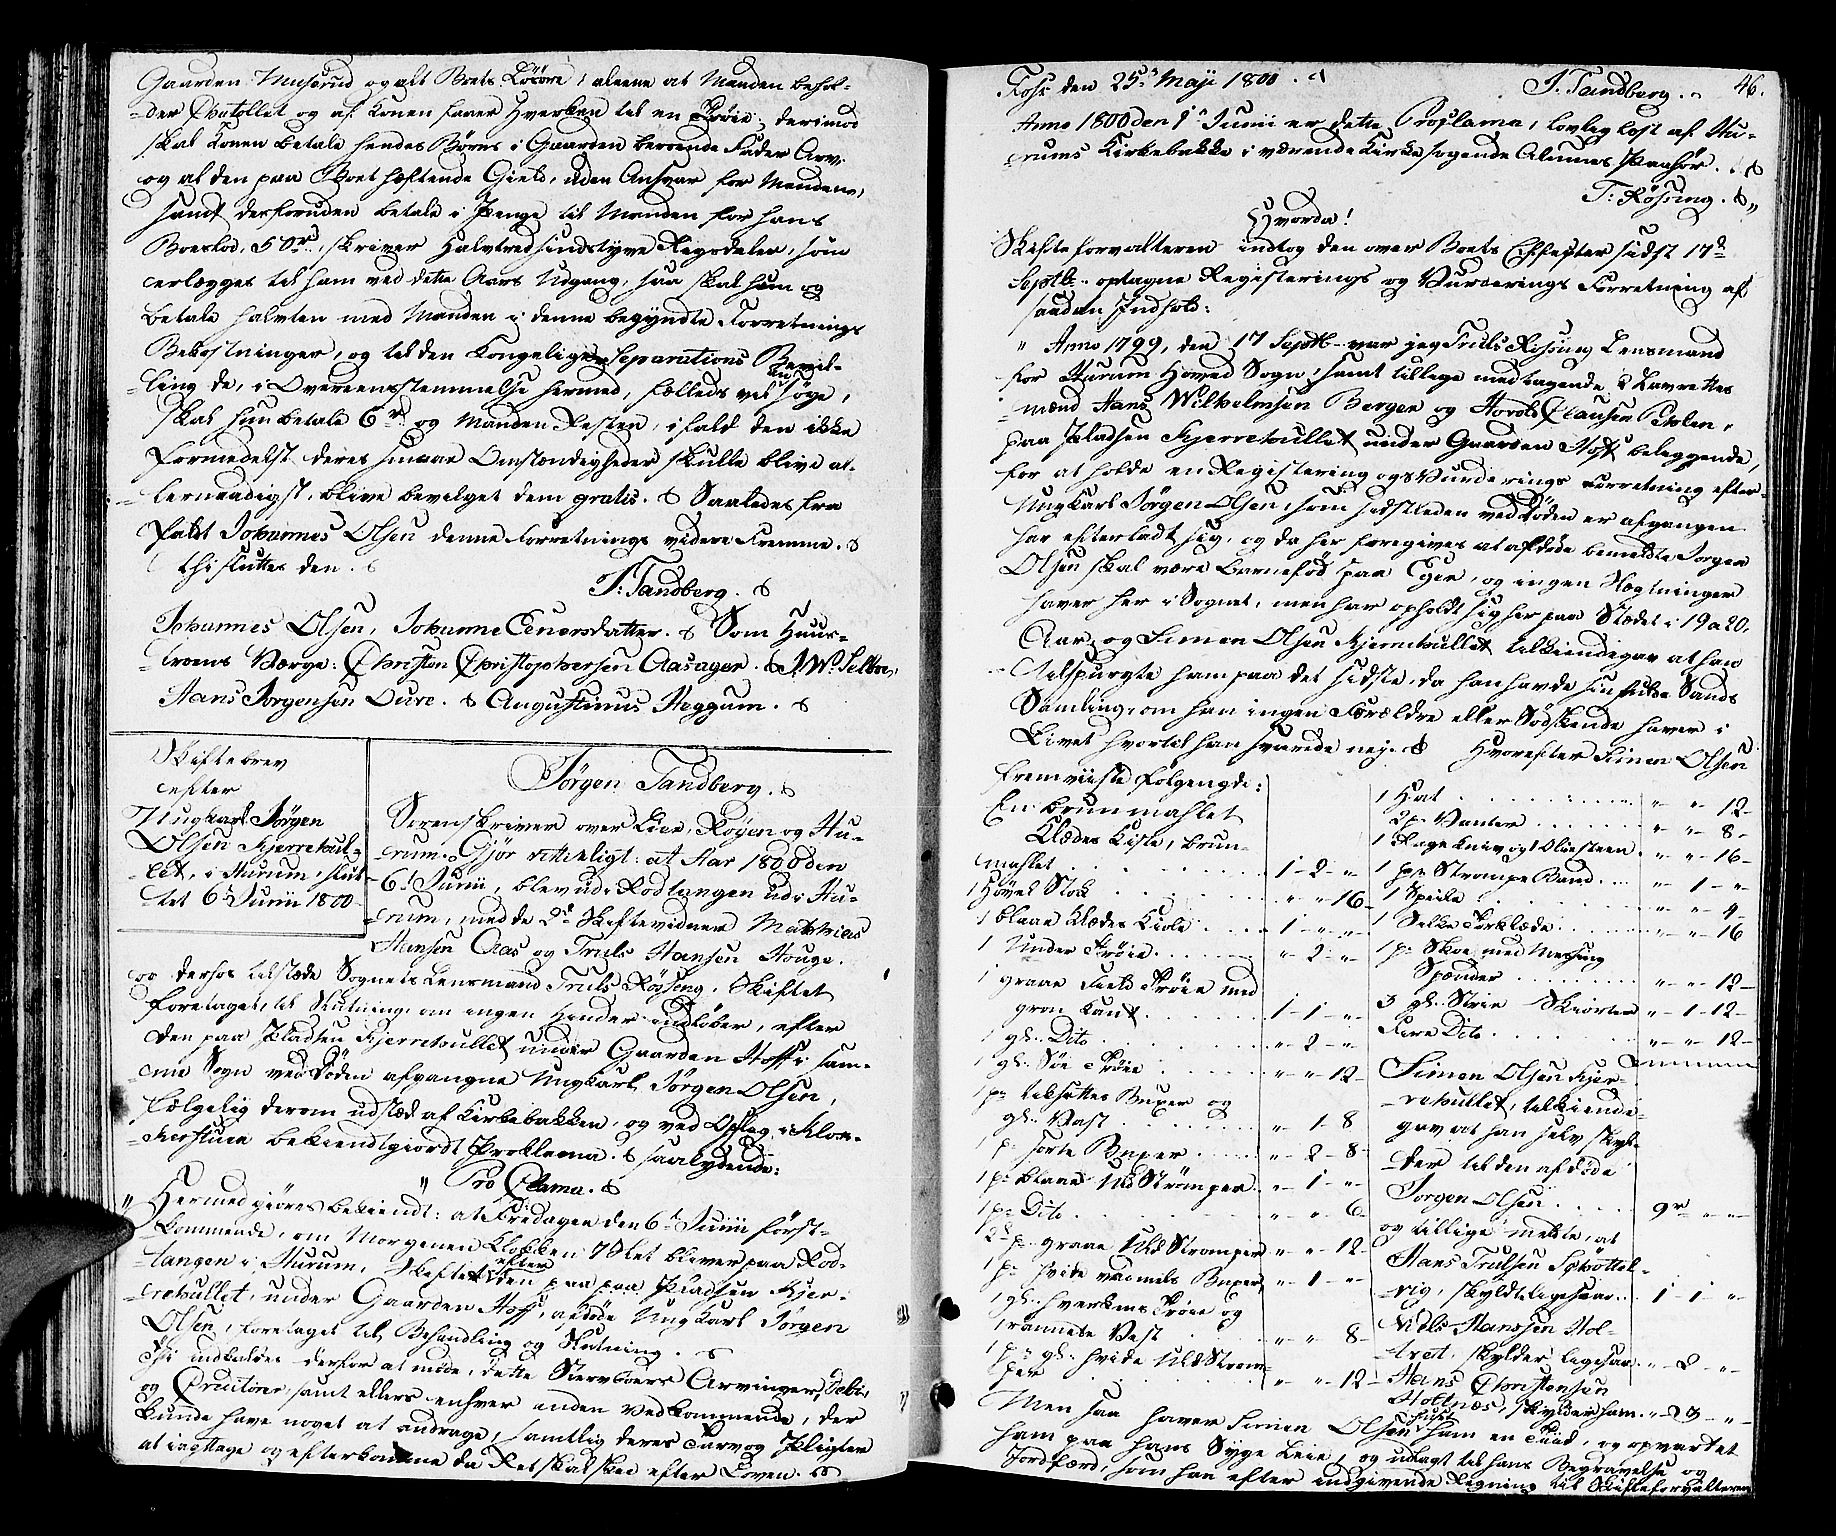 Gaarden Muserud og alt Boets Løsøre, alene at Manden behol-
der Chatollet og af Konen faaer Hverken til en Trøie; derimod
skal Konen betale hendes Børns i Gaarden beroende Fader Arv,
og al den paa Boet hæftende Gield, uden Ansvar for Manden,
samt desforuden betale i Penge til Manden for hans
Boeslod, 50rd, skriver Halvtredsindstyve Rigsdaler, som
erlægges til ham ved dette Aars Udgang, saa skal hun og
betale halvten med Manden i denne begyndte Forretnings
Bekostninger, og til den Kongelige Separations Bevil-
ling de, i Overeensstemmelse hermed, fælleds vil ansøge,
skal hun betale 6rd og Manden Resten, ifald den ikke
formedelst deres smaae Omstændigheder skulle blive al-
lernaadigst blive bevilget dem gratis. Saaledes fra
faldt Johannes Olsen denne Forretnings videre Fremme.
thi sluttes den.
J: Tandberg.
Johannes Olsen, Johanne Enersdatter. Som Huus-
troens Værge: Christen Christophersen Aasager. J. W. Selboe,
Hans Jørgensen Oure. Augustinus Heggum.
Skiftebrev
efter
Ungkarl Jørgen
Olsen Kjerrehul-
let, i Hurum, slut-
tet 6te Junii 1800
Jørgen Tandberg.
Sorenskriver over Lier, Røyen og Hu-
rum. Gjør vitterligt: at Aar 1800 den
6te Junii, blev udi Rodtangen udi Hu-
rum, med de 2de Skiftevidner Mathias
Hansen Aas og Truls Hansen Houge.
og derhos tilstæde Sognets Lensmand Truls Røssing. Skiftet
foretaget, til Slutning, om ingen Hinder indløber, efter
den paa Pladsen Kjerrehullet under Gaarden Hoff i sam-
me Sogn ved Døden afgangne Ungkarl Jørgen Olsen,
følgelig derom udstæd af Kirkebakken, og ved Opslag i Klok-
kerstuen bekiendtgiordt Proklama. saalydende:
" Pro Clama.
" Hermed giøres bekiendt: at Fredagen den 6te Junii først-
kommende, om Morgenen Klokken 7 Slet bliver paa Rod-
tangen i Hurum, Skiftet efter den paa paa Pladsen Kjer-
rehullet, under Gaarden Hoff, afdøde Ungkarl Jørgen
Olsen, foretaget til Behandling og Slutning.
Thi indkaldes derfor at møde, dette Sterbboes Arvinger, Debi,
og Creditorer, samt ellers enhver anden Vedkommende, der
kunde have noget at andrage, samtlig deres Tarv og Pligter
at iagttage og efterkomme da Ret skal skee efter Loven.
46.
Foss den 25de Maji 1800. J. Tandberg.
Anno 1800 den 1te Junii er dette Proclama, lovlig lyst af Hu-
rums Kirkebakke i værende Kirkesøgende Almues Paahør.
T: Røssing.
Hvorda!
Skifteforvalteren indtog den over Boets Effecter sidst 17de
Septbr. optagne Registerings og Vurderings Forretning af
saadan Indhold:
" Anno 1799, den 17 Septbr. var jeg Truls Røssing Lensmand
for Hurum Hoved Sogn, samt tillige medtagende 2 Lavrettes
mænd Hans Wilhelmsen Berger og Hovel Clausen Pihlen,
paa Pladsen Kjerrehullet under Gaarden Hoff beliggende,
for at holde en Registering og Vurderings Forretning efter
Ungkarl Jørgen Olsen, som sidstleden ved Døden er afgangen
har efterladt sig, og da her foregives at afdøde bemeldte Jørgen
Olsen skal være barnefød paa Eger, og ingen Slegtninger
haver her i Sognet, men har opholdt sig her paa Stædet i 19 a 20.
Aar, og Simen Olsen Kjerrehullet tilkiendegav at han
tilspurgte ham paa det sidste, da han havde sin fulde Sands
Samling, om han ingen Forældre eller Sødskende haver i
Livet hvortil han svarede nej. Hvorefter Simen Olsen
fremviiste følgende:
En brunmahlet
Klædes Kiste, brun-
mahlet . . . 1 - 2 - "
1 Høvel Stok . . . " " 16
1 blaae Klædes Kiole . . . 1 - " - "
1 Under Trøie . . . " - 2 - "
1 graae Field Trøie med
grøn Kant . . . 1 - 1 - "
1 gl: Dito . . . " - 2 - "
1 gl. Søe Trøie . . . " " 12
1 pr. tilsatte Buxer og
gl: Vest . . . " - 1 - 8
1 p. sorte Buxer . . . " - 2 - 8
1 p: blaae Uld Strømper . . . " - 1 - "
1 p: Dito . . . " - " - 6
2de p. graae Uld Strømper " - " - 12
1 p: hvide vadmels Buxer, " - 1 - "
1 gl: hverkens Trøie og
rannete Vest . . . " - " - 8
1 p: gl: hvide Uld Strøm-
per . . . " " 12
1 Hat . . . " - " - 12
2 p: Vanter . . . " - " - 8
1 Ragekniv og 1 Oliesteen " - " - 16
1 pr Strømpe Baand . . . " - 1 - "
1 Speile . . . " - " - 4
1 Silke Tørklæde . . . " - " - 16
1 p: Skoe med Messing
Spænder . . . " - " - 12
3 gl: Strie Skiorter " - 1 - 12
Fire Dito . . . " - " - 12
Simen Olsen Kjer-
rehullet, tilkiende-
gav at han selv skyl-
der til den afdøde
Jørgen Olsen . . . 9rd " - "
og tillige meldte, at
Hans Trulsen Sphøttel-
vig, skyldte ligesaa . . . 1 - 1 - "
Niels Hanssen Hol-
tret, skylder ligesaa . . " - 2 - "
Hans Christensen
Holtnæs, skylder ham . . " - 2 - "
Men saa haver Simen Olsen huset ham en Tiid, og opvartet
ham paa hans Syge Leie, og udlagt til hans Begravelse og
Jordfærd, som han efter indgivende Regning til Skifteforvalteren